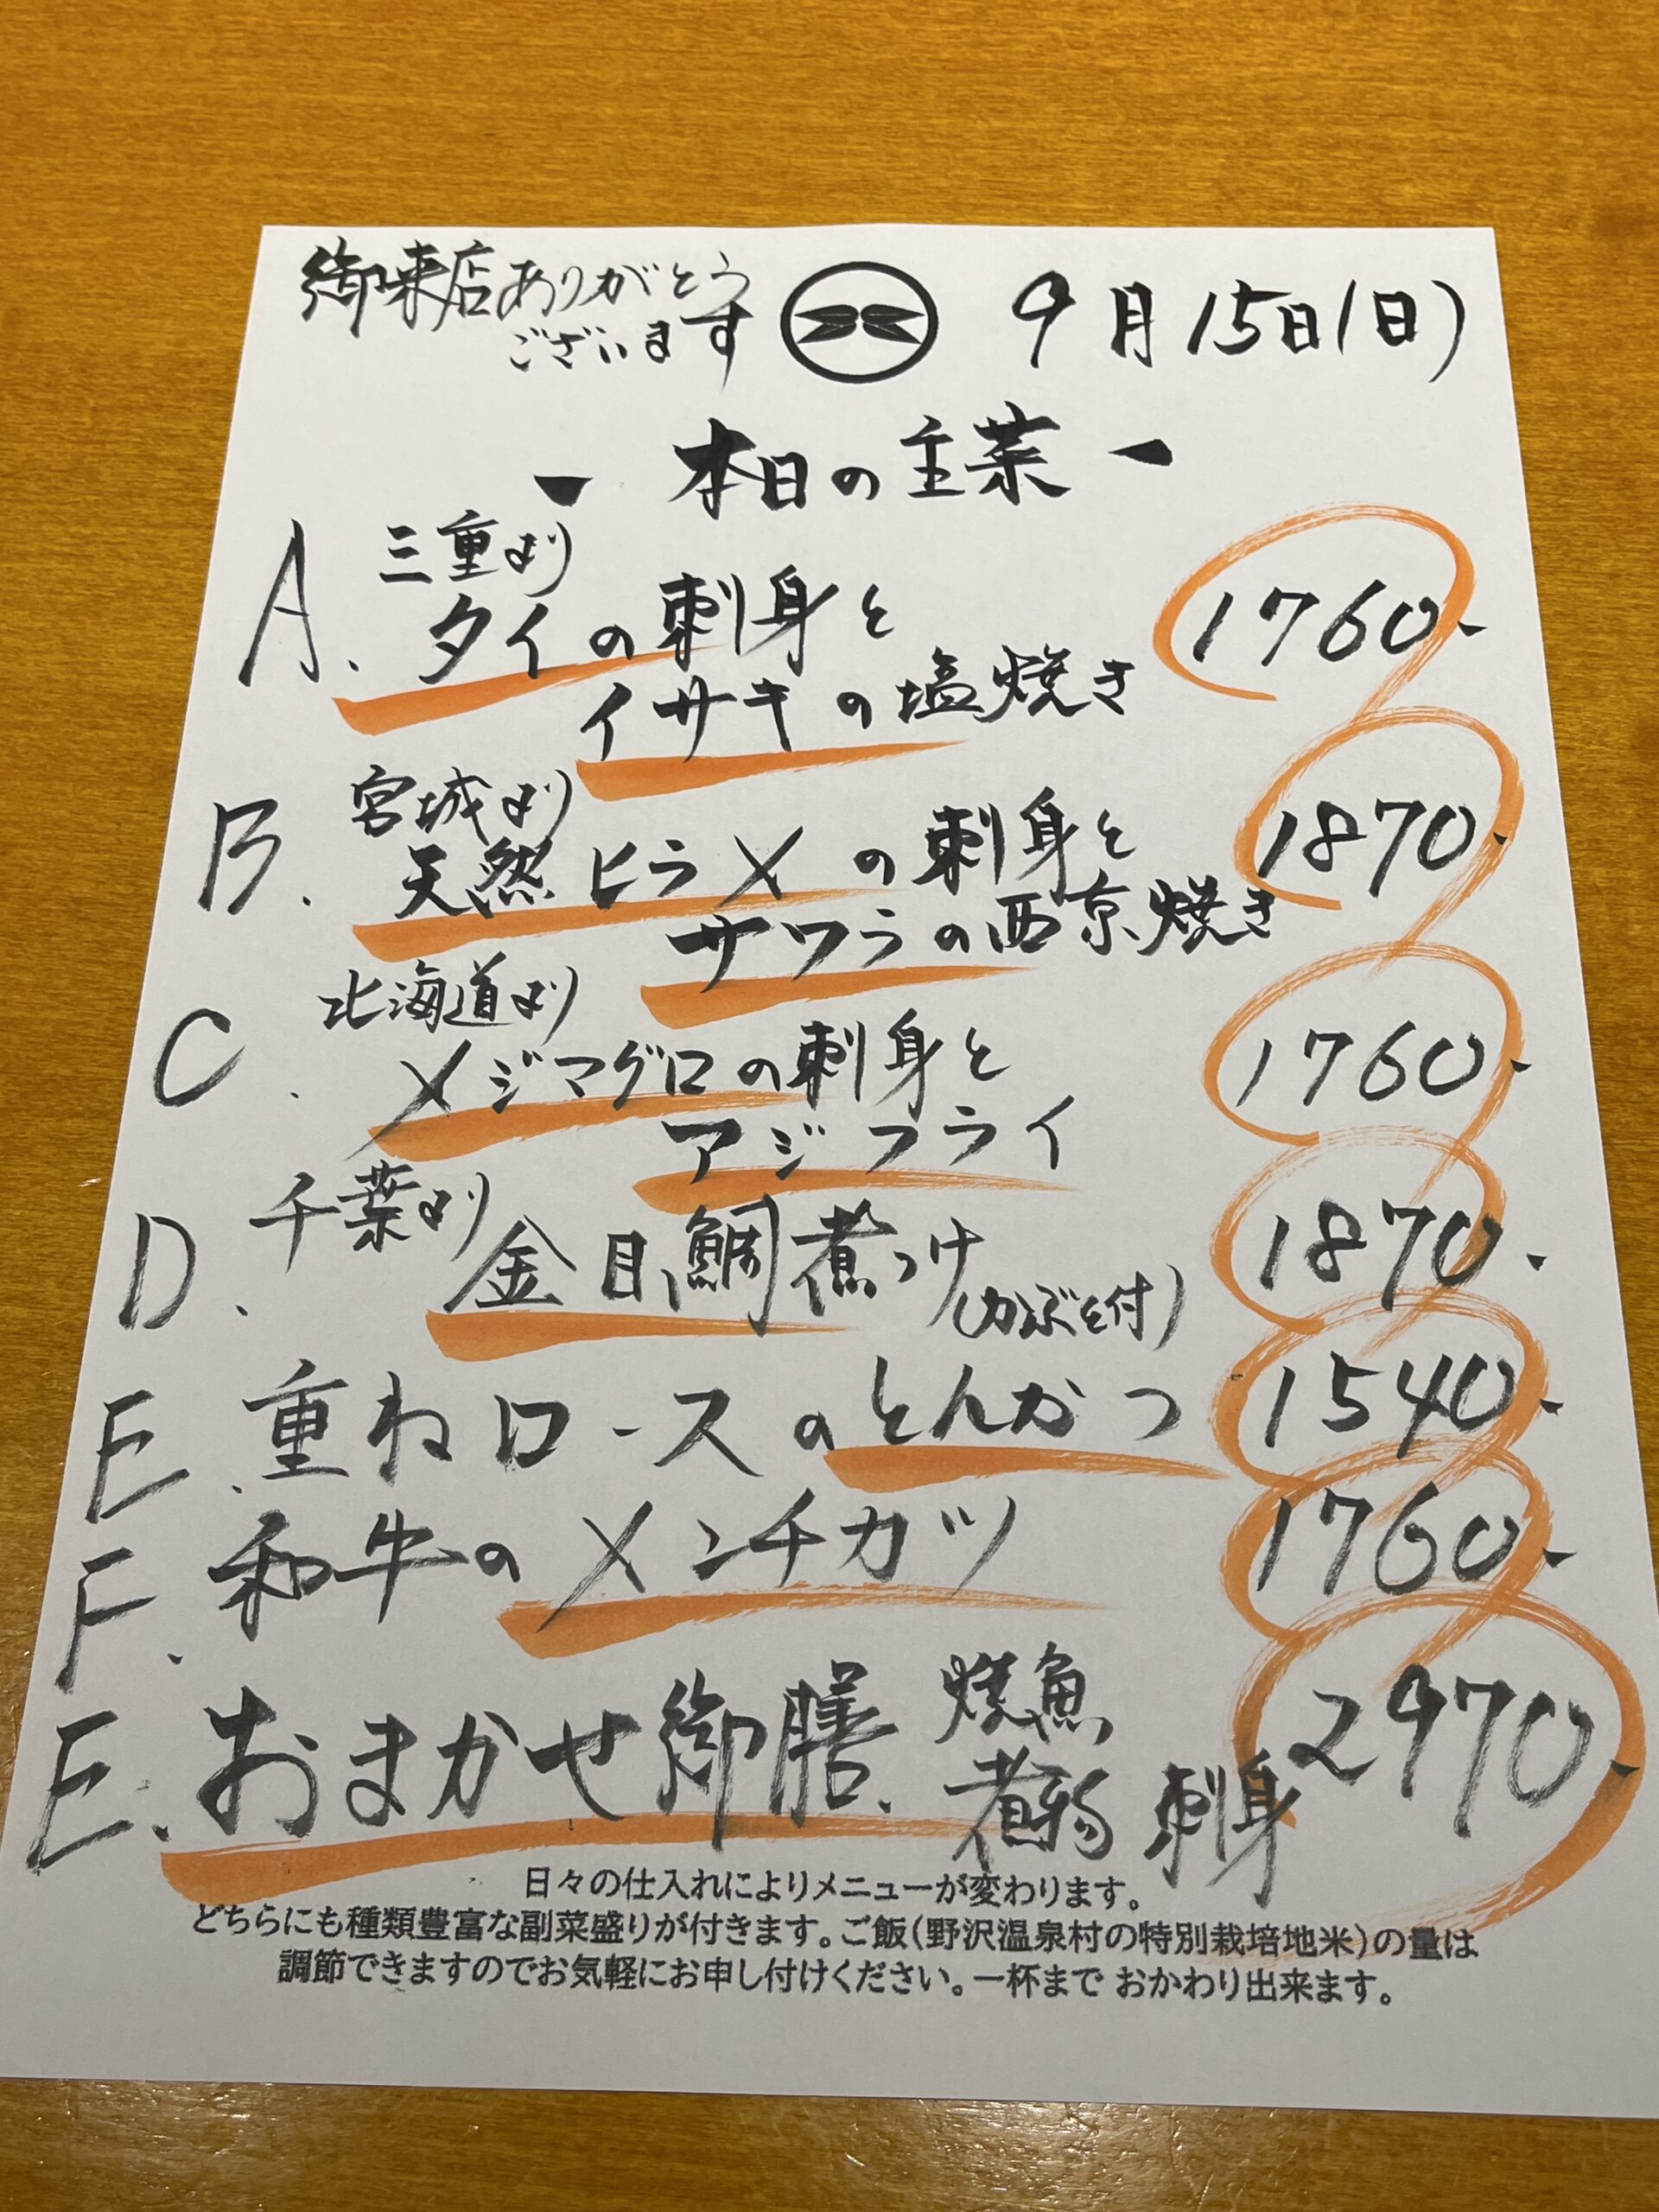 御来店ありがとう
ございます
9月15日(日)
- 本日の主菜 -
A. 三重より
タイの刺身と
イサキの塩焼き
1760.
B. 宮城より
天然ヒラメの刺身と
サワラの西京焼き
1870.
C. 北海道より
メジマグロの刺身と
アジフライ
1760.
D. 千葉より
金目鯛煮つけ(かぶと付)
1870.
E. 重ねロースのとんかつ 1540.
F. 和牛のメンチカツ 1760.
E. おまかせ御膳. 焼魚 煮物 刺身 2970.
日々の仕入れによりメニューが変わります。
どちらにも種類豊富な副菜盛りが付きます。ご飯(野沢温泉村の特別栽培地米)の量は
調節できますのでお気軽にお申し付けください。一杯まで おかわり出来ます。